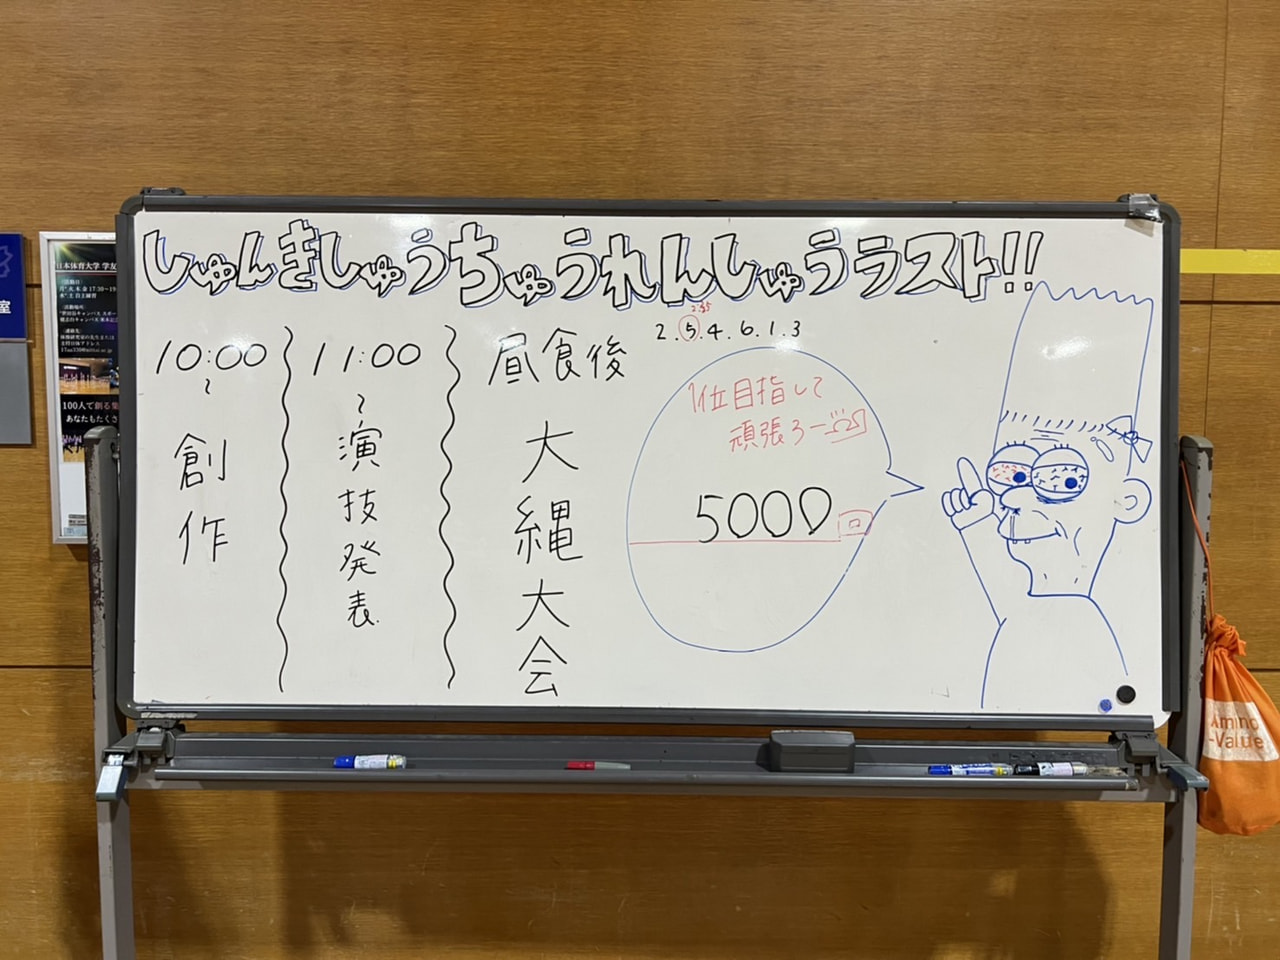 しゅんきしゅうちゅうれんしゅうラスト!!
10:00
~
創作
11:00
~
演技発表
昼食後
大縄大会
2:35
2.5.4.6.1.3
1位目指して
頑張ろー
5000
日本体育大学 学友
月・火・木・金 17:30〜19
100人で創る集
あなたもたくさ
室
Amino
-Value